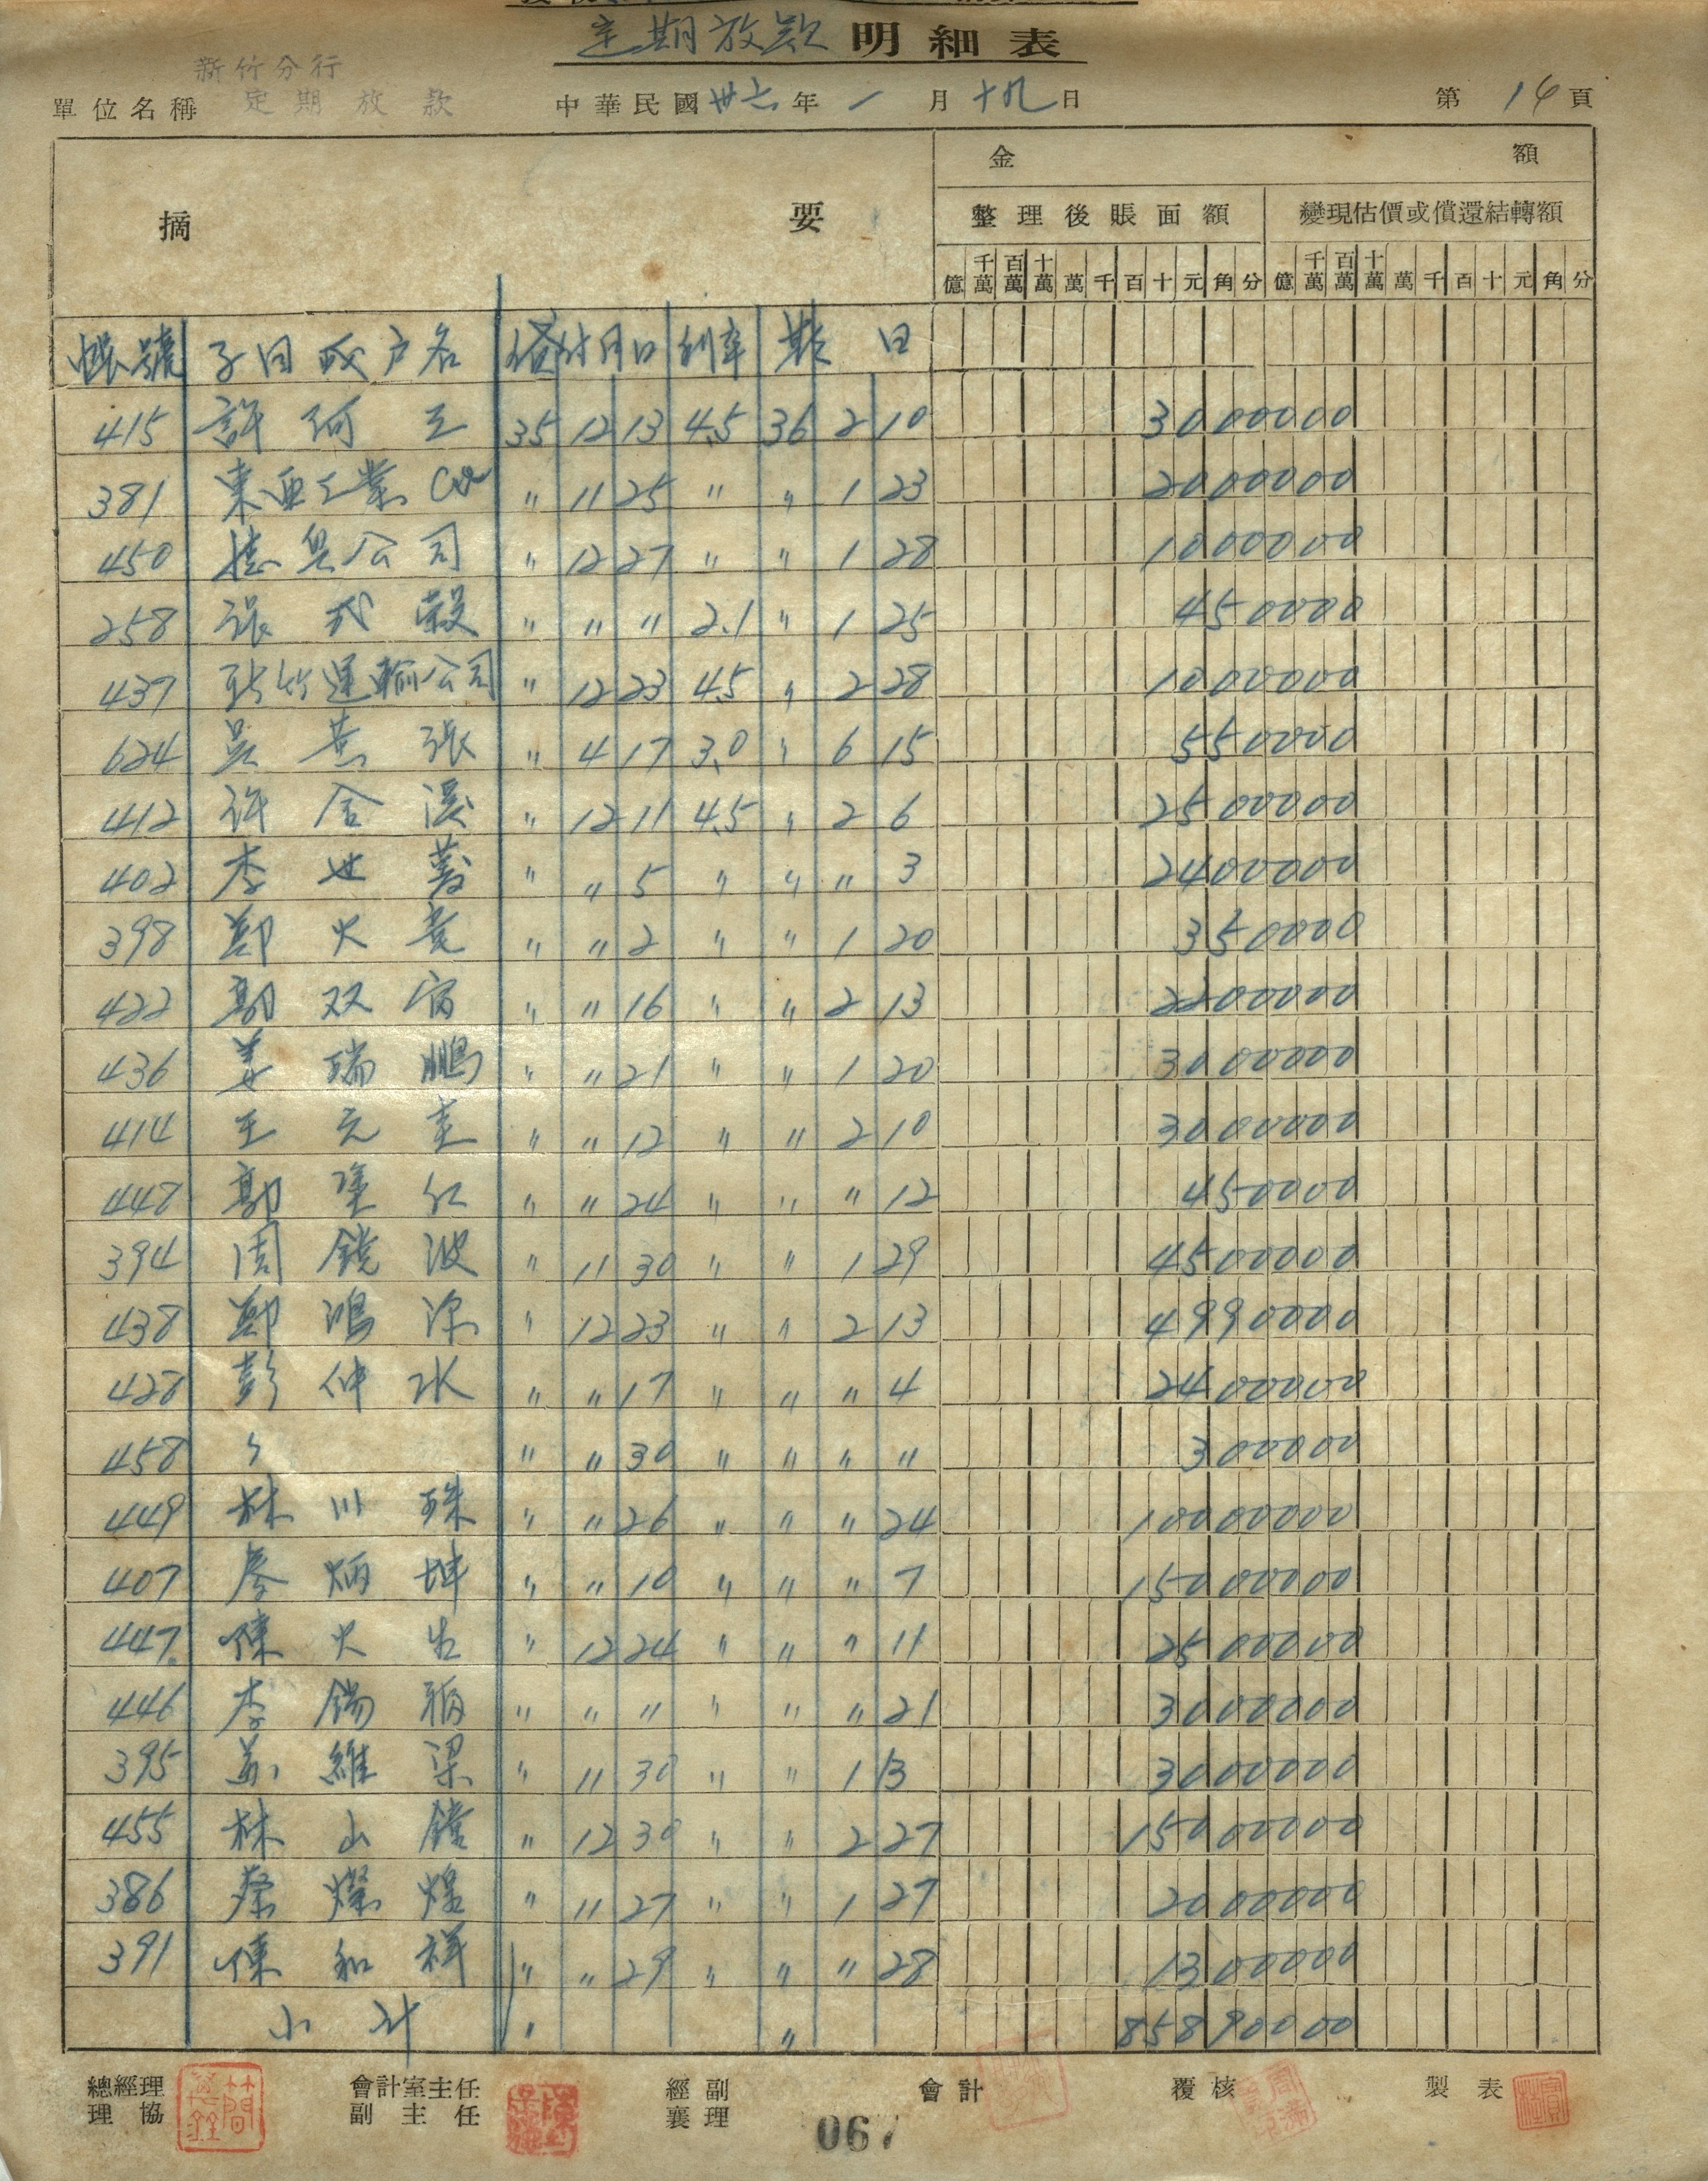 定期放款 明細表
新竹分行
單位名稱 定期放款 中華民國卅六年 一 月 十九 日 第 14 頁
摘 要 金 額
整理後賬面額 變現估價或償還結轉額
億 千萬 百萬 十萬 萬 千 百 十 元 角 分 億 千萬 百萬 十萬 萬 千 百 十 元 角 分
帳號 子目或户名 貸付月日 利率 期日
415 許阿 35 12 13 4.5 36 2 10 3000000
381 東亜工業 Co " 11 25 " " 1 23 2000000
450 德興公司 " 12 27 " " 1 28 1000000
258 張 " " " 2.1 " 1 25 450000
437 新竹運輸公司 " 12 23 4.5 " 2 28 1000000
624 吳 張 " 4 17 3.0 " 6 15 550000
412 許金 " 12 11 4.5 " 2 6 2500000
402 李世 " " 5 " " " 3 2400000
398 鄭火 " " 2 " " 1 20 350000
422 郭双 " " 16 " " 2 13 2200000
436 姜瑞鵬 " " 21 " " 1 20 3000000
414 王元 " " 12 " " 2 10 3000000
448 郭 " " 24 " " " 12 450000
394 周鏡波 " 11 30 " " 1 29 4500000
438 鄭鴻 " 12 23 " " 2 13 4990000
428 彭仲水 " " 17 " " " 4 2400000
458 〃 " " 30 " " " " 300000
449 林川珠 " " 26 " " " 24 10000000
407 彥炳坤 " " 10 " " " 7 15000000
447 陳火生 " 12 24 " " " 11 2500000
446 李錫 " " " " " " 21 3000000
395 蘇維梁 " 11 30 " " 1 13 3000000
455 林山鐘 " 12 30 " " 2 27 15000000
386 蔡燦煌 " 11 27 " " 1 27 2000000
391 陳和祥 " " 29 " " " 28 1300000
小計 " " 85890000
總經理 會計室主任 經副 會計 覆核 製表
理協 副主任 襄理
067